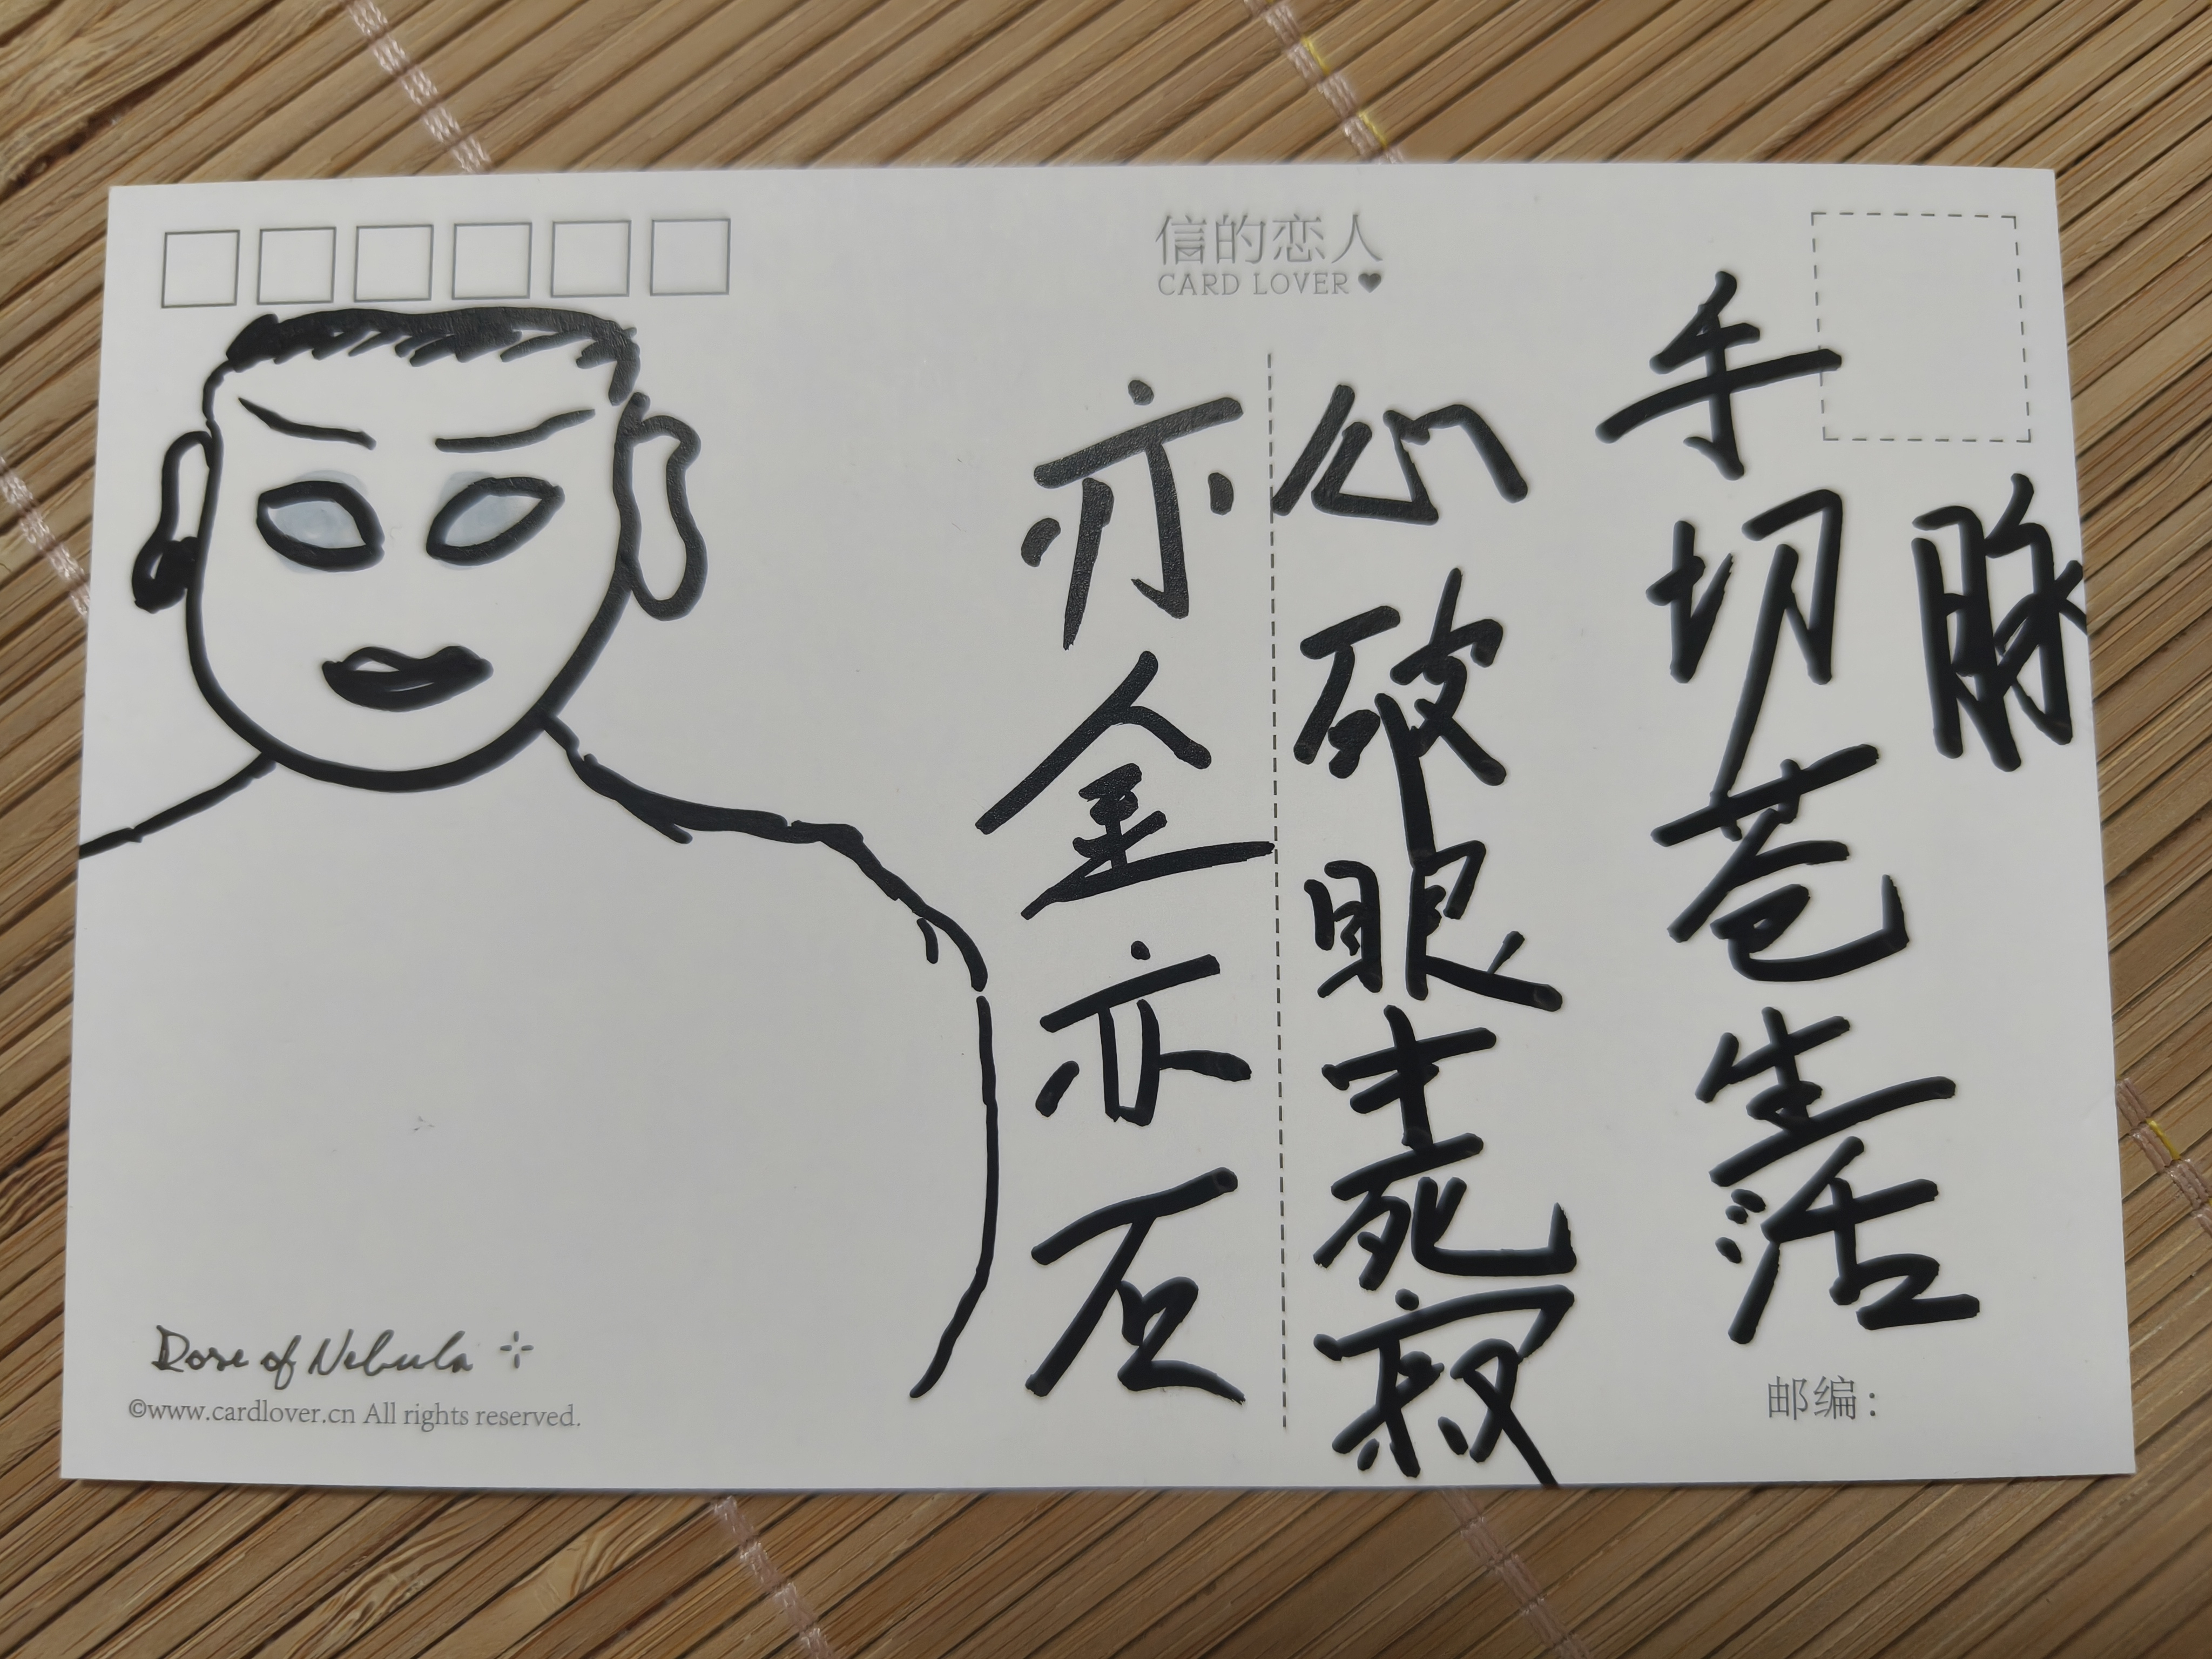 信的恋人
CARD LOVER
手切苍生活
脉
心破眼主死寂
亦金亦石
Rose of Nebula
©www.cardlover.cn All rights reserved.
邮编：